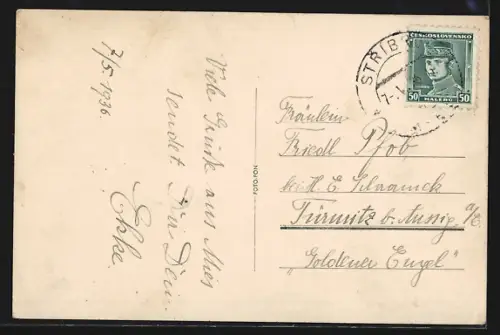 7/5. 1936
Viele Grüße aus Mies
sendet Dir Dein
Ekke.
FOTO-FON
STŘÍB
ČESKOSLOVENSKO
50 50
Fräulein
Friedl Pfob
bei H. E. Schwanck
Türmitz b. Aussig a/E
"Goldener Engel"